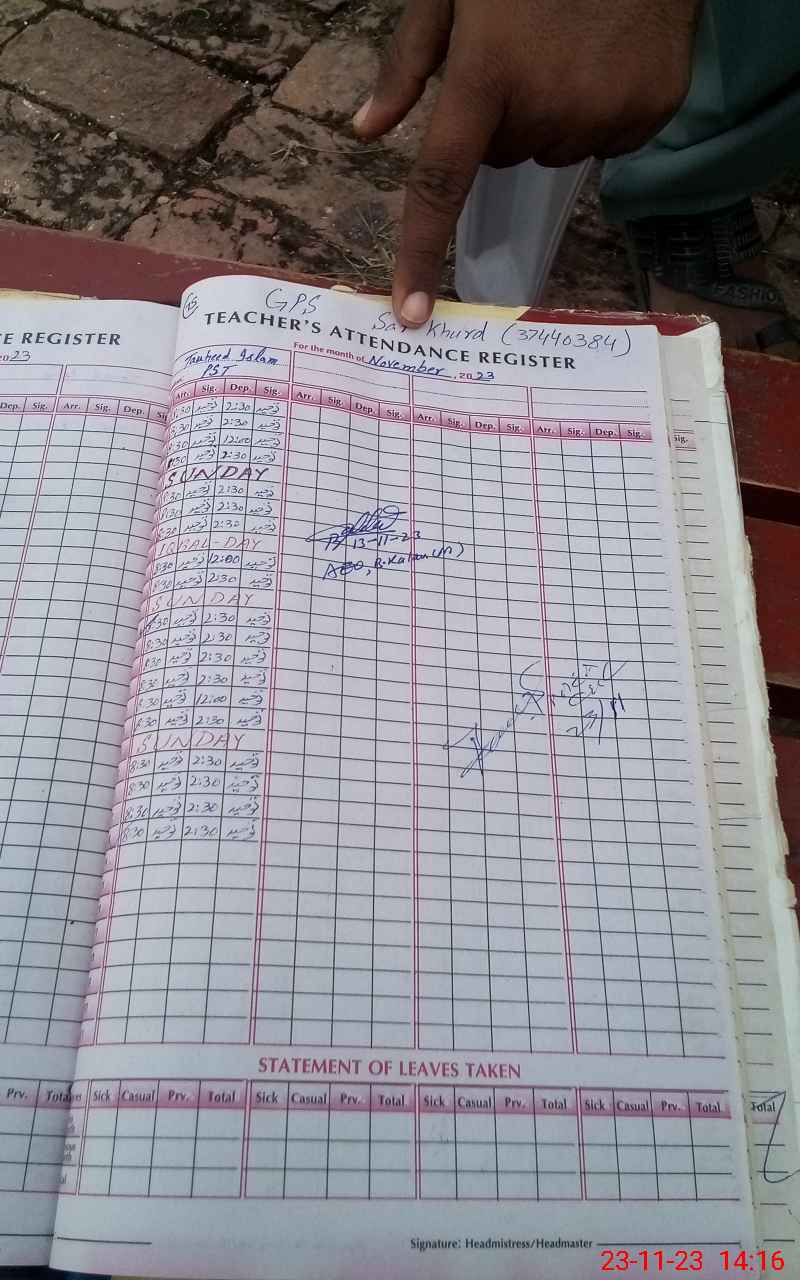 15
GPS Sar Khurd (37440384)
CE REGISTER
TEACHER'S ATTENDANCE REGISTER
2023
Tauheed Islam
PST
For the month of November, 2023
Dep. Sig. Arr. Sig. Dep. Sig.
Arr. Sig. Dep. Sig. Arr. Sig. Dep. Sig. Arr. Sig. Dep. Sig. Arr. Sig. Dep. Sig.
Sig.
8:30 توحید 2:30 توحید
8:30 توحید 2:30 توحید
8:30 توحید 12:00 توحید
8:30 توحید 2:30 توحید
SUNDAY
8:30 توحید 2:30 توحید
8:30 توحید 2:30 توحید
8:30 توحید 2:30 توحید
IQBAL-DAY
8:30 توحید 12:00 توحید
8:30 توحید 2:30 توحید
SUNDAY
8:30 توحید 2:30 توحید
8:30 توحید 2:30 توحید
8:30 توحید 2:30 توحید
8:30 توحید 2:30 توحید
8:30 توحید 12:00 توحید
8:30 توحید 2:30 توحید
SUNDAY
8:30 توحید 2:30 توحید
8:30 توحید 2:30 توحید
8:30 توحید 2:30 توحید
8:30 توحید 2:30 توحید
13-11-23
AEO, B.Kalan (M)
STATEMENT OF LEAVES TAKEN
Prv. Total
Sick Casual Prv. Total Sick Casual Prv. Total Sick Casual Prv. Total Sick Casual Prv. Total
Total
Signature: Headmistress/Headmaster
FASHION
23-11-23 14:16